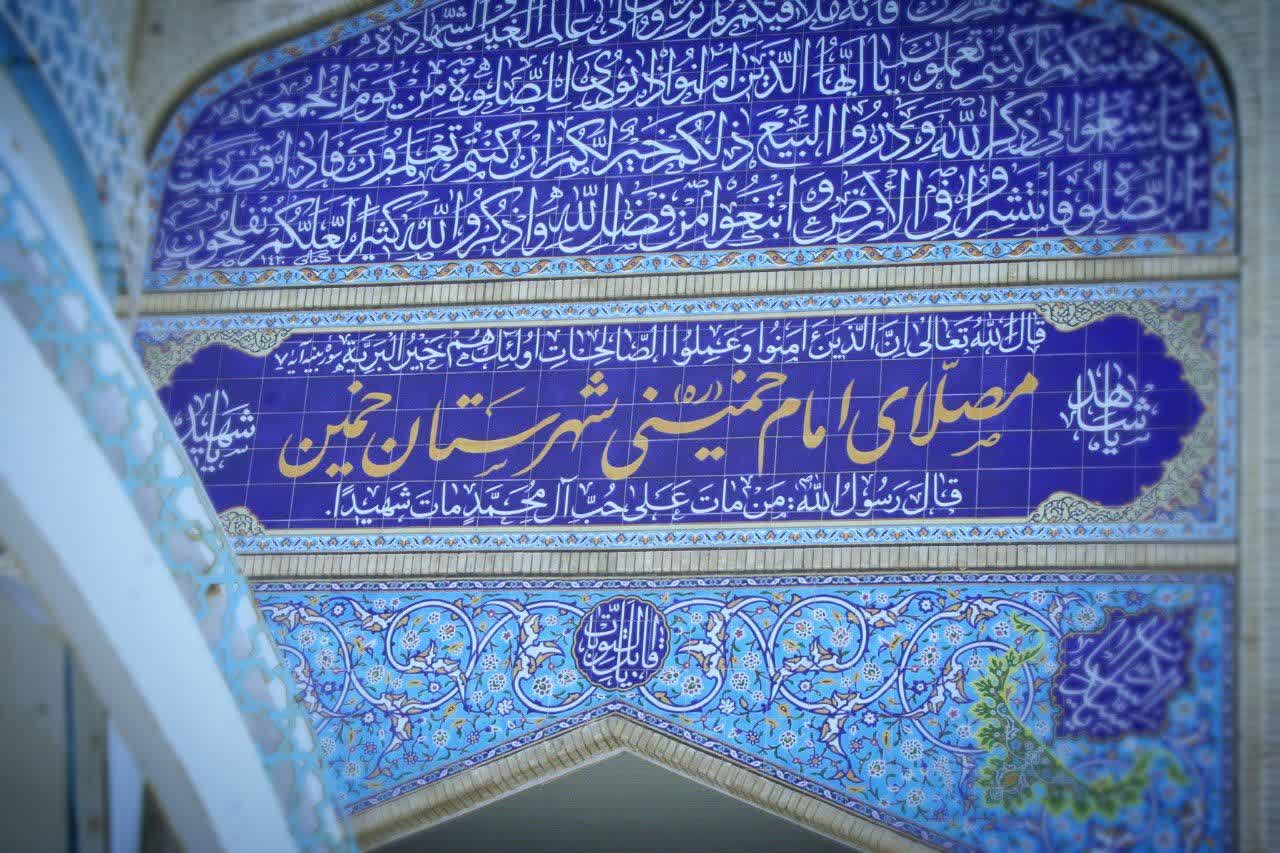 تفرون فانه ملاقيكم ثم تردون الى عالم الغيب والشهادة
فينبئكم بما كنتم تعملون يا ايها الذين امنوا اذا نودي للصلوة من يوم الجمعة
فاسعوا الى ذكر الله وذروا البيع ذلكم خير لكم ان كنتم تعلمون فاذا قضيت
الصلوة فانتشروا في الارض وابتغوا من فضل الله واذكروا الله كثيرا لعلكم تفلحون
۱۴۳۰
قال الله تعالى ان الذين امنوا وعملوا الصالحات اولئك هم خير البرية سوره بينه آيه ۷
يا شاهد
مصلّای امام خمینی (ره) شهرستان خمین
يا شهيد
قال رسول الله: من مات على حب آل محمد مات شهيدًا.
يا قابل التوبات